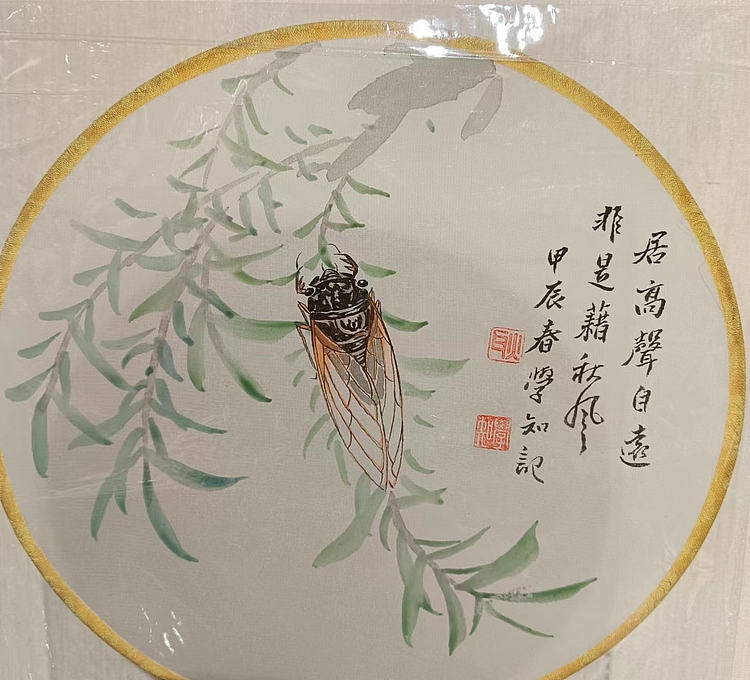 居高聲自遠
非是藉秋風
甲辰春學知記